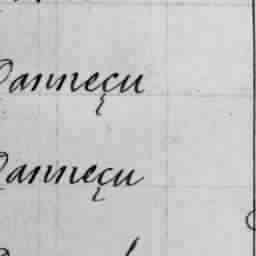 Danneçu
Danneçu